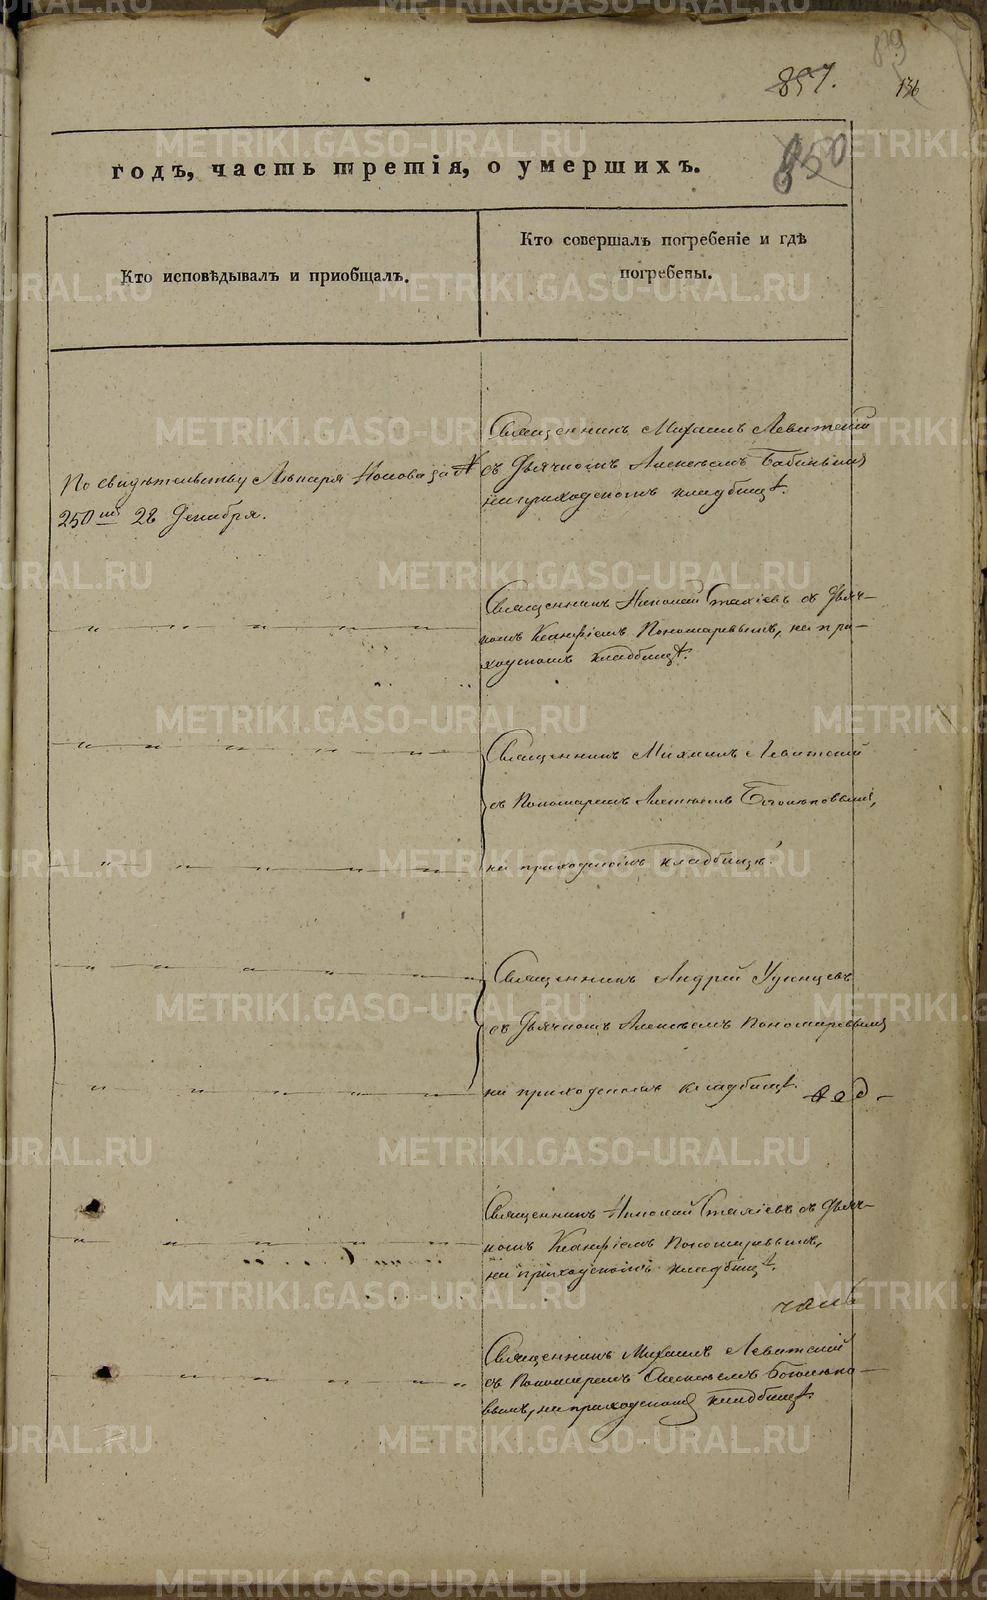 879
857.
136
850
годъ, часть третія, о умершихъ.
Кто исповѣдывалъ и приобщалъ.
Кто совершалъ погребеніе и гдѣ
погребены.
По свидѣтельству Лѣкаря Попова за №
250мъ 28 Декабря.
Священникъ Михаилъ Левитскій
съ Дьячкомъ Алексѣемъ
на приходскомъ кладбищѣ.
Священникъ Николай Стахіевъ съ Дьяч-
комъ Ксанфіемъ Пономаревымъ, на при-
ходскомъ кладбищѣ.
Священникъ Михаилъ Левитскій
съ Пономаремъ Алексѣемъ Боголѣповымъ,
на приходскомъ кладбищѣ.
Священникъ Андрей Удинцевъ
съ Дьячкомъ Алексѣемъ Пономаревымъ
на приходскомъ кладбищѣ.
Священникъ Николай Стахіевъ съ Дьяч-
комъ Ксанфіемъ Пономаревымъ,
на приходскомъ кладбищѣ.
Священникъ Михаилъ Левитскій
съ Пономаремъ Алексѣемъ Боголѣпо-
вымъ, на приходскомъ кладбищѣ.
METRIKI.GASO-URAL.RU